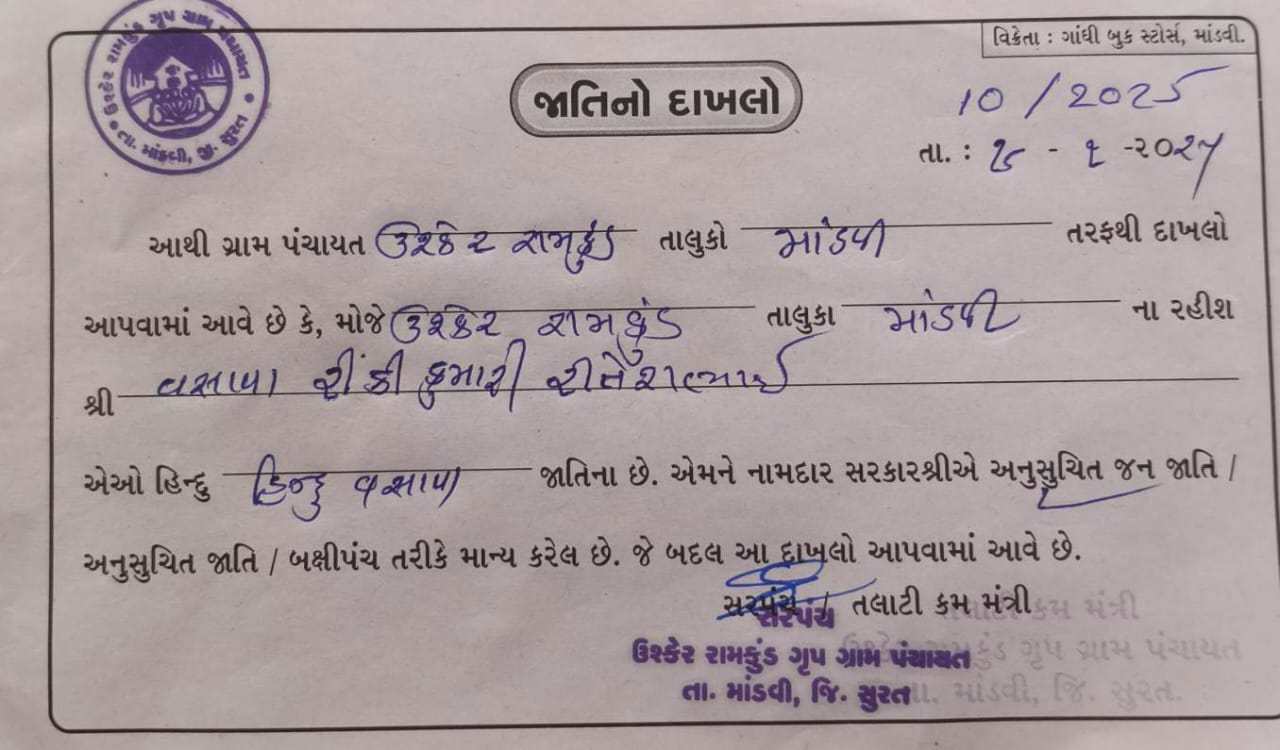 ઉશ્કેર રામકુંડ ગૃપ ગ્રામ પંચાયત
તા. માંડવી, જી. સુરત
વિક્રેતા : ગાંધી બુક સ્ટોર્સ, માંડવી.
જાતિનો દાખલો
10 / 2025
તા. : - ૨૦૨૫
આથી ગ્રામ પંચાયત ઉશ્કેર રામકુંડ તાલુકો માંડવી તરફથી દાખલો
આપવામાં આવે છે કે, મોજે ઉશ્કેર રામકુંડ તાલુકા માંડવી ના રહીશ
શ્રી વસાવા રીંકી કુમારી રીતેશભાઈ
એઓ હિન્દુ હિન્દુ વસાવા જાતિના છે. એમને નામદાર સરકારશ્રીએ અનુસુચિત જન જાતિ /
અનુસુચિત જાતિ / બક્ષીપંચ તરીકે માન્ય કરેલ છે. જે બદલ આ દાખલો આપવામાં આવે છે.
સરપંચ / તલાટી કમ મંત્રી
સરપંચ
ઉશ્કેર રામકુંડ ગૃપ ગ્રામ પંચાયત
તા. માંડવી, જિ. સુરત
તલાટી કમ મંત્રી
ઉશ્કેર રામકુંડ ગૃપ ગ્રામ પંચાયત
તા. માંડવી, જિ. સુરત.